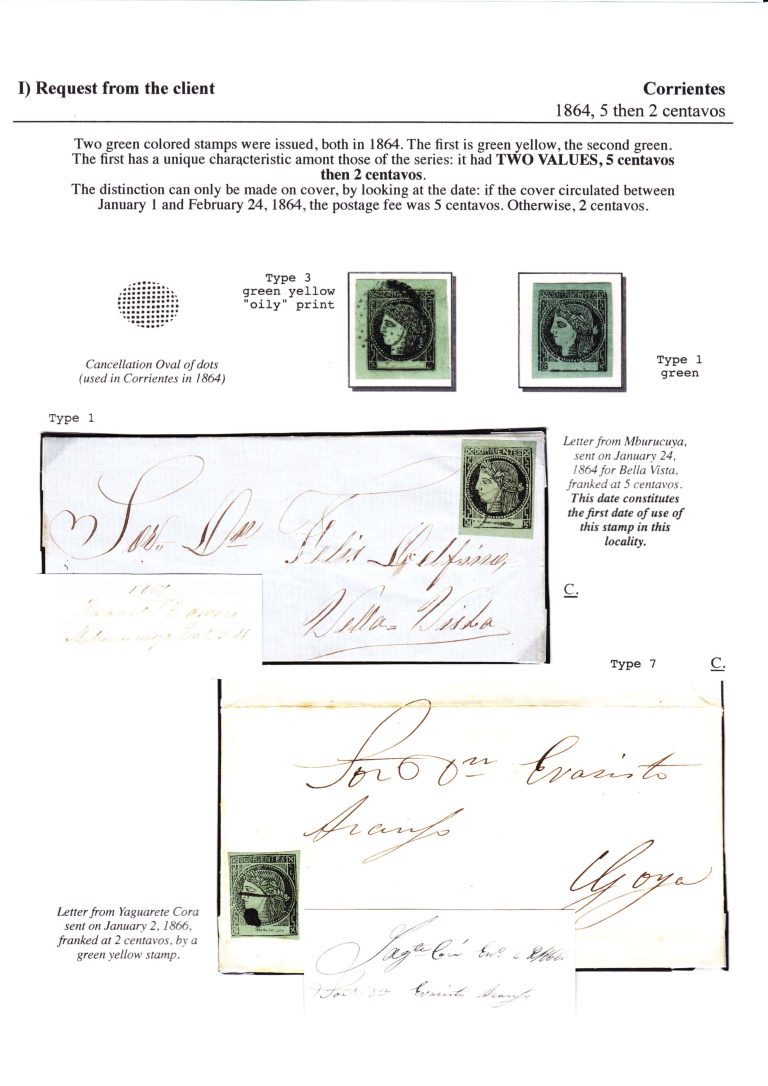 I) Request from the client
Corrientes
1864, 5 then 2 centavos
Two green colored stamps were issued, both in 1864. The first is green yellow, the second green.
The first has a unique characteristic amont those of the series: it had TWO VALUES, 5 centavos
then 2 centavos.
The distinction can only be made on cover, by looking at the date: if the cover circulated between
January 1 and February 24, 1864, the postage fee was 5 centavos. Otherwise, 2 centavos.
Type 3
green yellow
"oily" print
Type 1
green
Cancellation Oval of dots
(used in Corrientes in 1864)
Type 1
CORRIENTES
Letter from Mburucuya,
sent on January 24,
1864 for Bella Vista,
franked at 5 centavos.
This date constitutes
the first date of use of
this stamp in this
locality.
C.
Sor. Dn Felis
Vella=Vista
Type 7
C.
Sor Dn Evaristo
Araujo
Goya
CORRIENTES
Letter from Yaguarete Cora
sent on January 2, 1866,
franked at 2 centavos, by a
green yellow stamp.
Sor Dn Evaristo Araujo